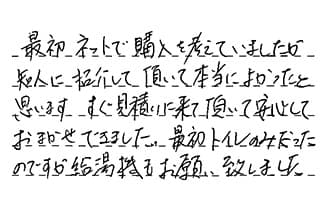 最初 ネットで購入を考えていましたが
知人に紹介して頂いて本当によかったと
思います すぐ見積りに来て頂いて安心して
おまかせできました。最初トイレのみだった
のですが給湯機もお願い致しました